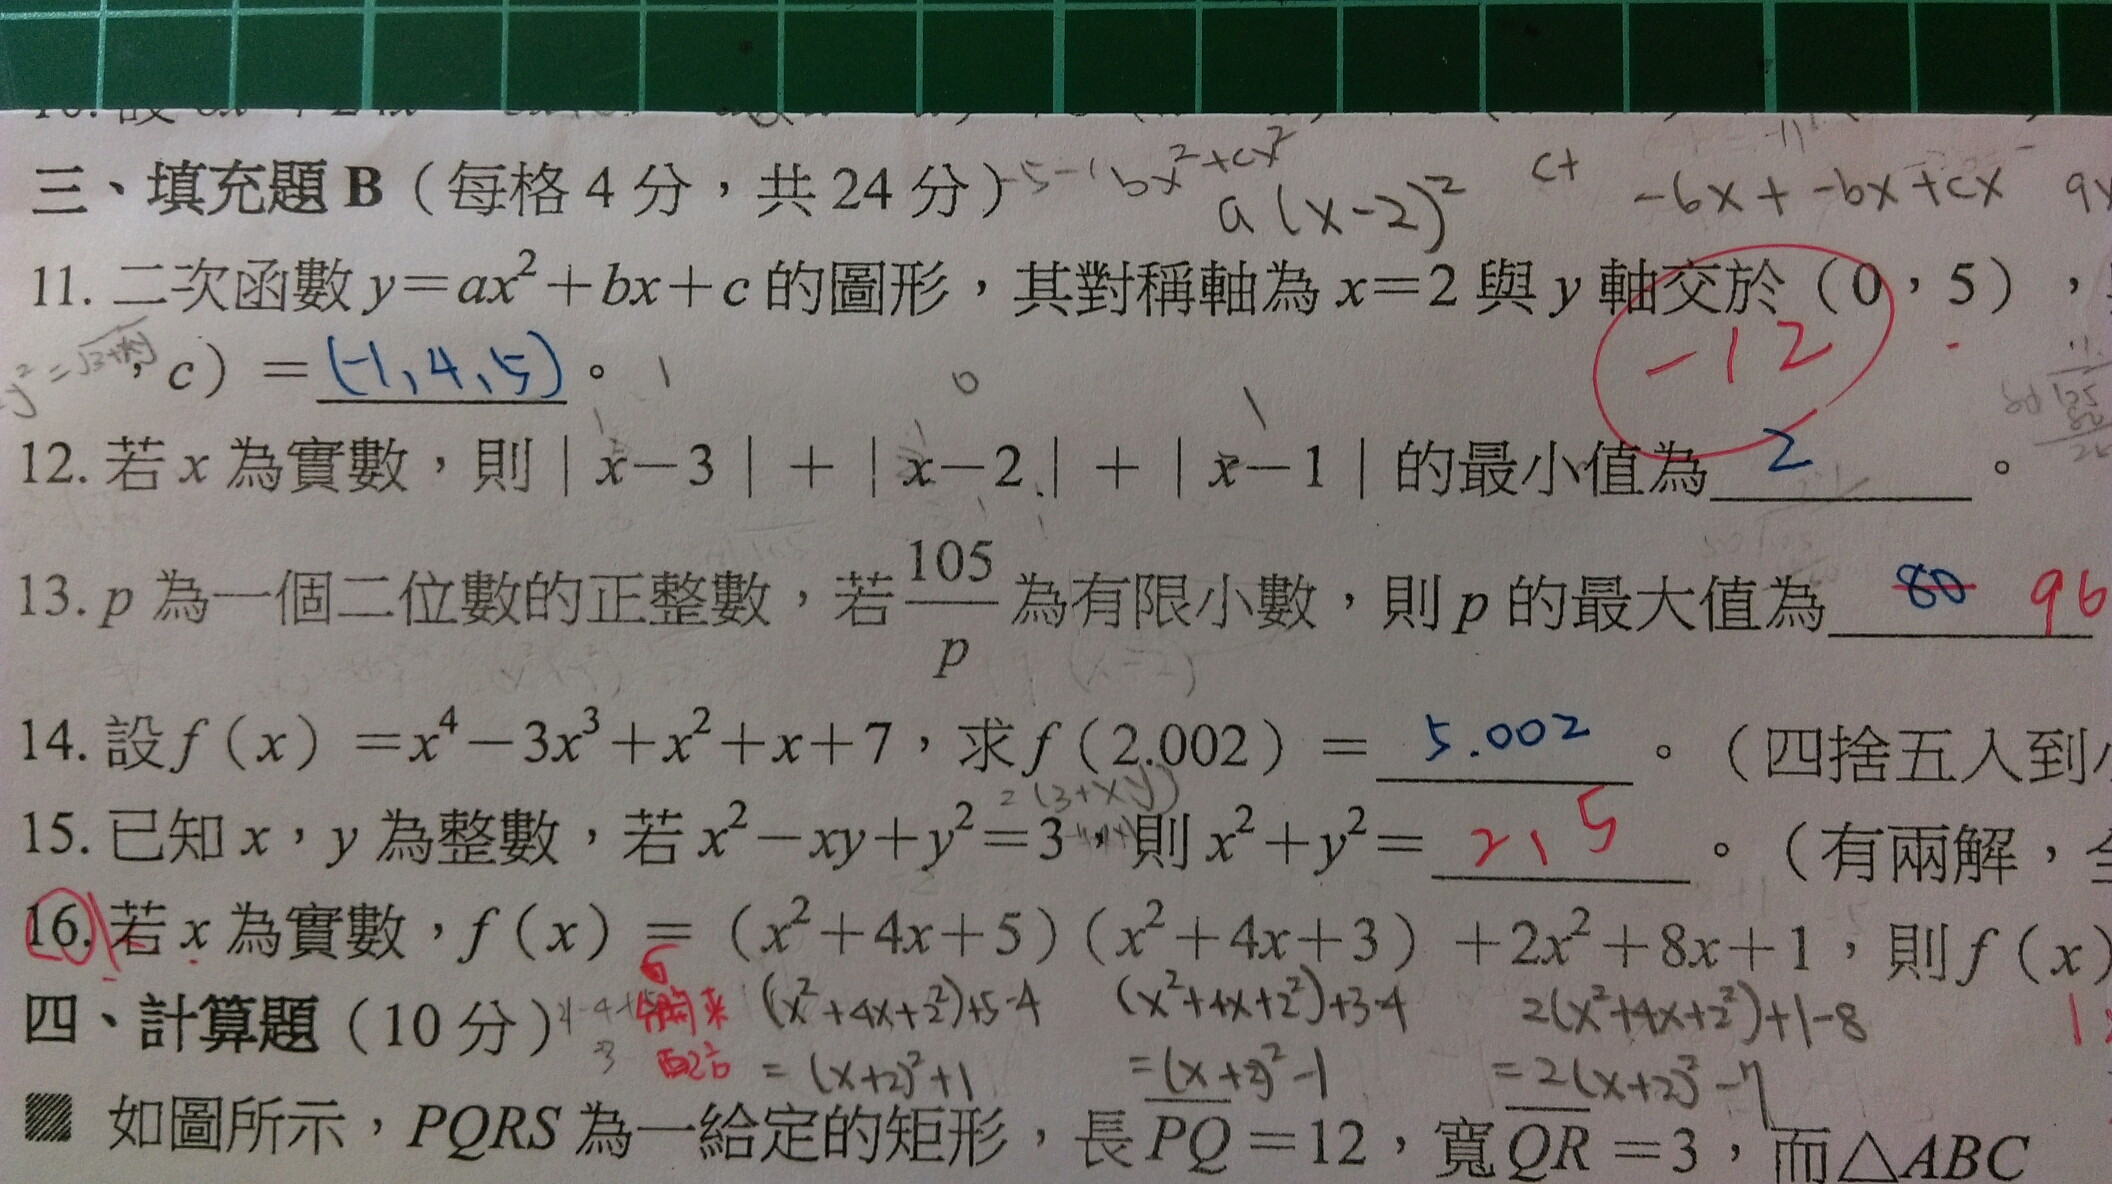 三、填充題 B（每格 4 分，共 24 分） bx²+cx² a(x-2)² c+ -6x+ -bx+cx 9x
11. 二次函數 y＝ax²＋bx＋c 的圖形，其對稱軸為 x＝2 與 y 軸交於（0，5），
，c）＝(-1,4,5)。 -12
12. 若 x 為實數，則｜x－3｜＋｜x－2｜＋｜x－1｜的最小值為 2 。
13. p 為一個二位數的正整數，若 105/p 為有限小數，則 p 的最大值為 80 96
(x-2)
14. 設 f（x）＝x⁴－3x³＋x²＋x＋7，求 f（2.002）＝ 5.002 。（四捨五入到小
2(3+xy)
15. 已知 x，y 為整數，若 x²－xy＋y²＝3，則 x²＋y²＝ 2,5 。（有兩解，全
16. 若 x 為實數，f（x）＝（x²＋4x＋5）（x²＋4x＋3）＋2x²＋8x＋1，則 f（x）
分開來 (x²+4x+2²)+5-4 (x²+4x+2²)+3-4 2(x²+4x+2²)+1-8
四、計算題（10 分）
配方 =(x+2)²+1 =(x+2)²-1 =2(x+2)²-7
如圖所示，PQRS 為一給定的矩形，長 PQ＝12，寬 QR＝3，而△ABC